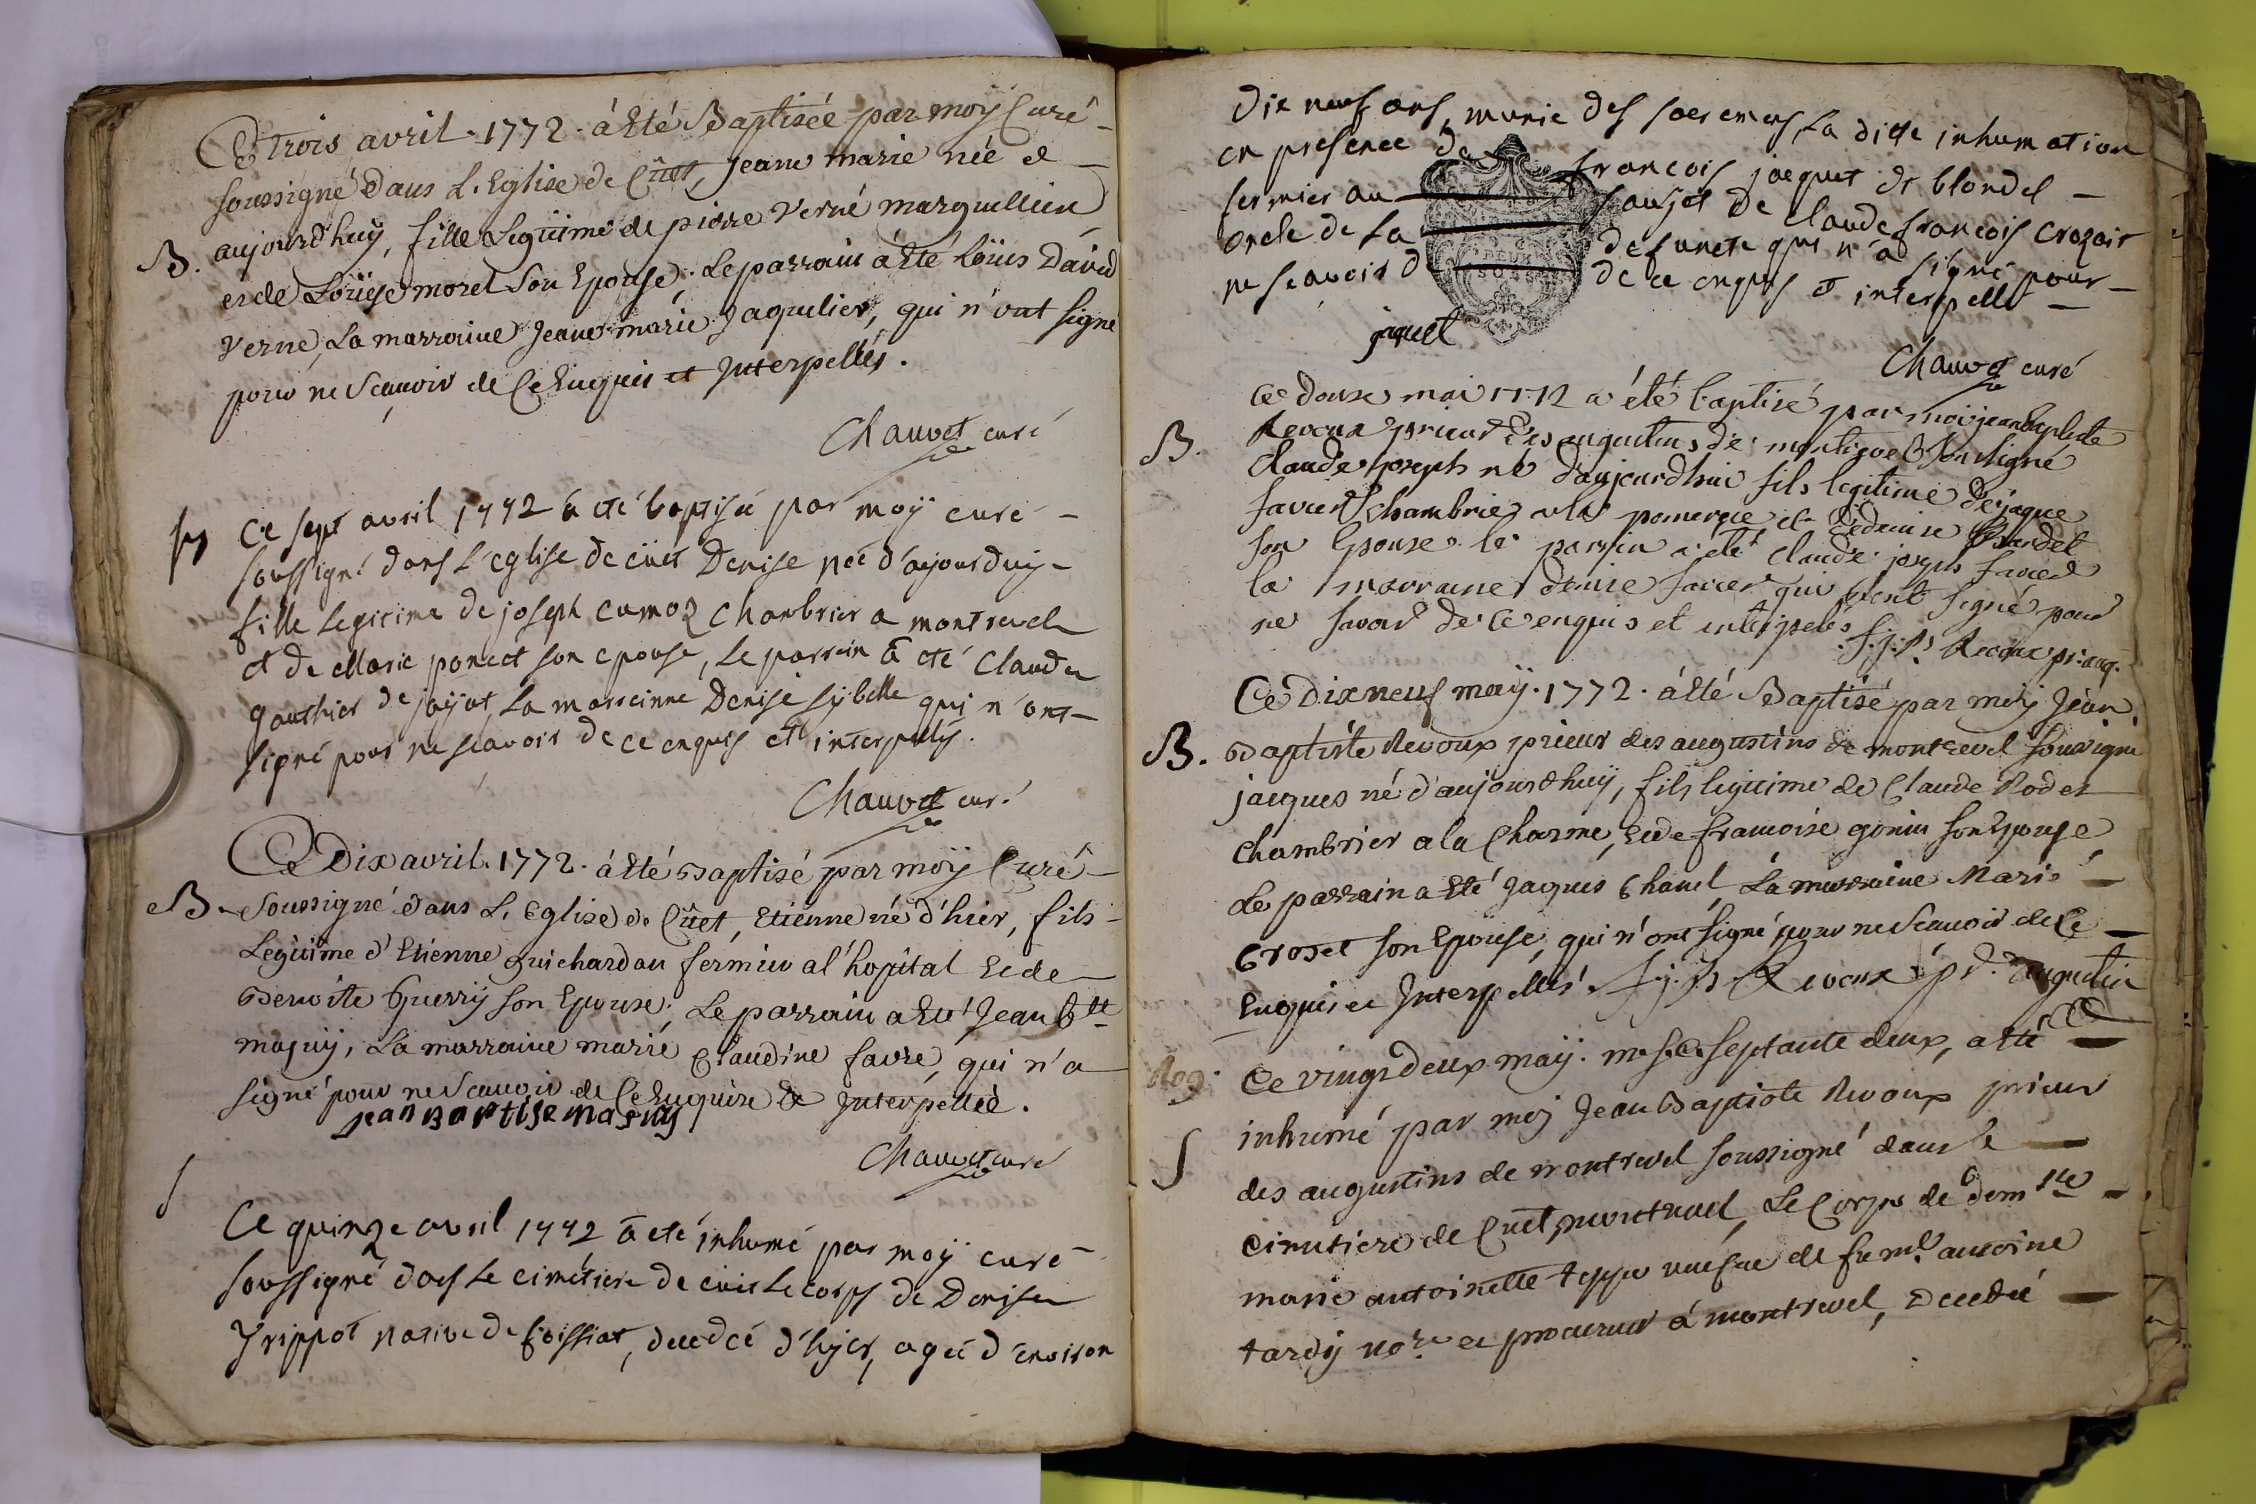 Ce trois avril. 1772. á Eté Baptiséé par moÿ Curé
soussigné dans L'Eglise de Cüet, jeane marie néé d
B. aujourd'huÿ, fille Legitime de pierre Verne marguillier
et de Loüise morel son Epouse. Le parrain á Eté Loüis David
Verne, La marraine Jeane marie Jaquelier, qui n'ont signé
pour ne Sçauoir de Ce Enquis et Jnterpellés.
Chauvet curé
Ce sept avril 1772 á eté baptiséé par moÿ curé
soussigné dans L'eglise de cüet Denise néé d'ajourduÿ
fille Legitime de joseph camoz chambrier a montrevel
et de Marie poncet son epouse, Le parrein á eté Claude
gauthier de jaÿat, La marreinne Denise sÿbelle qui n'ont
signé pour ne sçavoir de ce enquis et interpellés.
Chauvet curé
Ce Dix avril. 1772. á Eté Baptisé par moÿ Curé
B. Soussigné dans L'Eglise de Cüet, Etienne né d'hier, fils
Legitime d'Etienne guichardan fermier a l'hopital Et de
Benoite Guerrÿ son Epouse; Le parrain a Eté Jean Btte
maguÿ, La marraine marie Claudine favre, qui n'a
signé pour ne Sçauoir de Ce Enquise & Jnterpelléé.
jean Baptise maguÿ
Chauvet curé
Ce quinze avril 1772 á eté inhumé par moÿ curé
soussigné dans Le cimetiere de cüet Le corps de Denise
Trippot native de foissiat, decedéé d'hÿer, agéé d'environ
dix neuf ans, munie des sacremens, La ditte inhumation
en presence de francois jacquet dt blondel
fermier au saujet de Claude francois crozair
oncle de La defuncte qui n'a signé pour
ne sçavoir de ce enquis et interpellé
jaquet
DEUX
SOLS
Chauvet curé
Ce douse mai 1772 a été baptisé par moi jean baptiste
B. Revoux prieur des augustins de montrevel sousigné
Claude joseph né d'aujourdhui fils legitime de jaque
favier chambrier a la pomerage et de denise
son Epouse. le parrin a été Claude joseph favier
la marraine denise favier qui n'ont signé pour
ne savoir de Ce enquis et interpelés. f. j. B. Revoux pr. aug.
Ce Dixneuf maÿ. 1772. á Eté Baptisé par moÿ Jean
B. Baptiste Revoux prieur des augustins de montrevel soussigné
jacques né d'aujourdhuÿ, fils legitime de Claude Rodet
chambrier a la Charme, Et de francoise gonin son Epouse,
Le parrain a Eté Jaques Chanel, La marraine Marie
Crozet son Epouse, qui n'ont signé pour ne Sçauoir de Ce
Enquis et Jnterpellés. f. j. B. Revoux pr. augustin
Ce vingt deux maÿ. mil sept Cent septante deux, a Eté
inhumé par moÿ Jean Baptiste Revoux prieur
des augustins de montrevel soussigné dans le
cimetiere de Cüet montrevel, Le Corps de
marie antoinette veufue de feu mr. antoine
tardÿ nore. et procureur á montrevel, decedéé